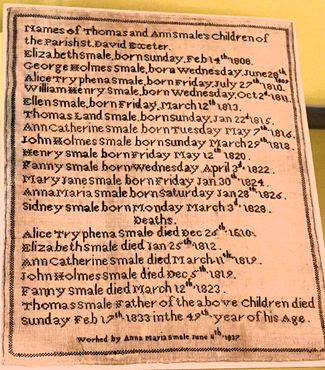 Names of Thomas and Ann Smale's Children of
the Parish St. David Exeter.
Elizabeth Smale, born Sunday, Feb 14th 1808.
George Holmes Smale, born Wednesday, June 28th, 1809
Alice Tryphena Smale, born Friday, July 27th 1810.
William Henry Smale, born Wednesday, Oct 2d 1811.
Ellen Smale, born Friday, March 12th 1813.
Thomas Land Smale, born Sunday, Jan 22d 1815.
Ann Catherine Smale, born Tuesday May 7th 1816.
John Holmes Smale born Sunday March 29th 1818.
Henry Smale born Friday May 12th 1820.
Fanny Smale born Wednesday April 3d 1822.
Mary Jane Smale born Friday Jan 30th 1824.
Anna Maria Smale, born Saturday Jan 28th 1826.
Sidney Smale born Monday March 3d 1828.
Deaths.
Alice Tryphena Smale died Dec 26th 1810.
Elizabeth Smale died Jan 25th 1812.
Ann Catherine Smale died March 11th 1819.
John Holmes Smale died Dec 5th 1819.
Fanny Smale died March 12th 1823.
Thomas Smale Father of the above Children died
Sunday Feb 17th 1833 in the 49th year of his Age.
Worked by Anna Maria Smale June 8th 1837